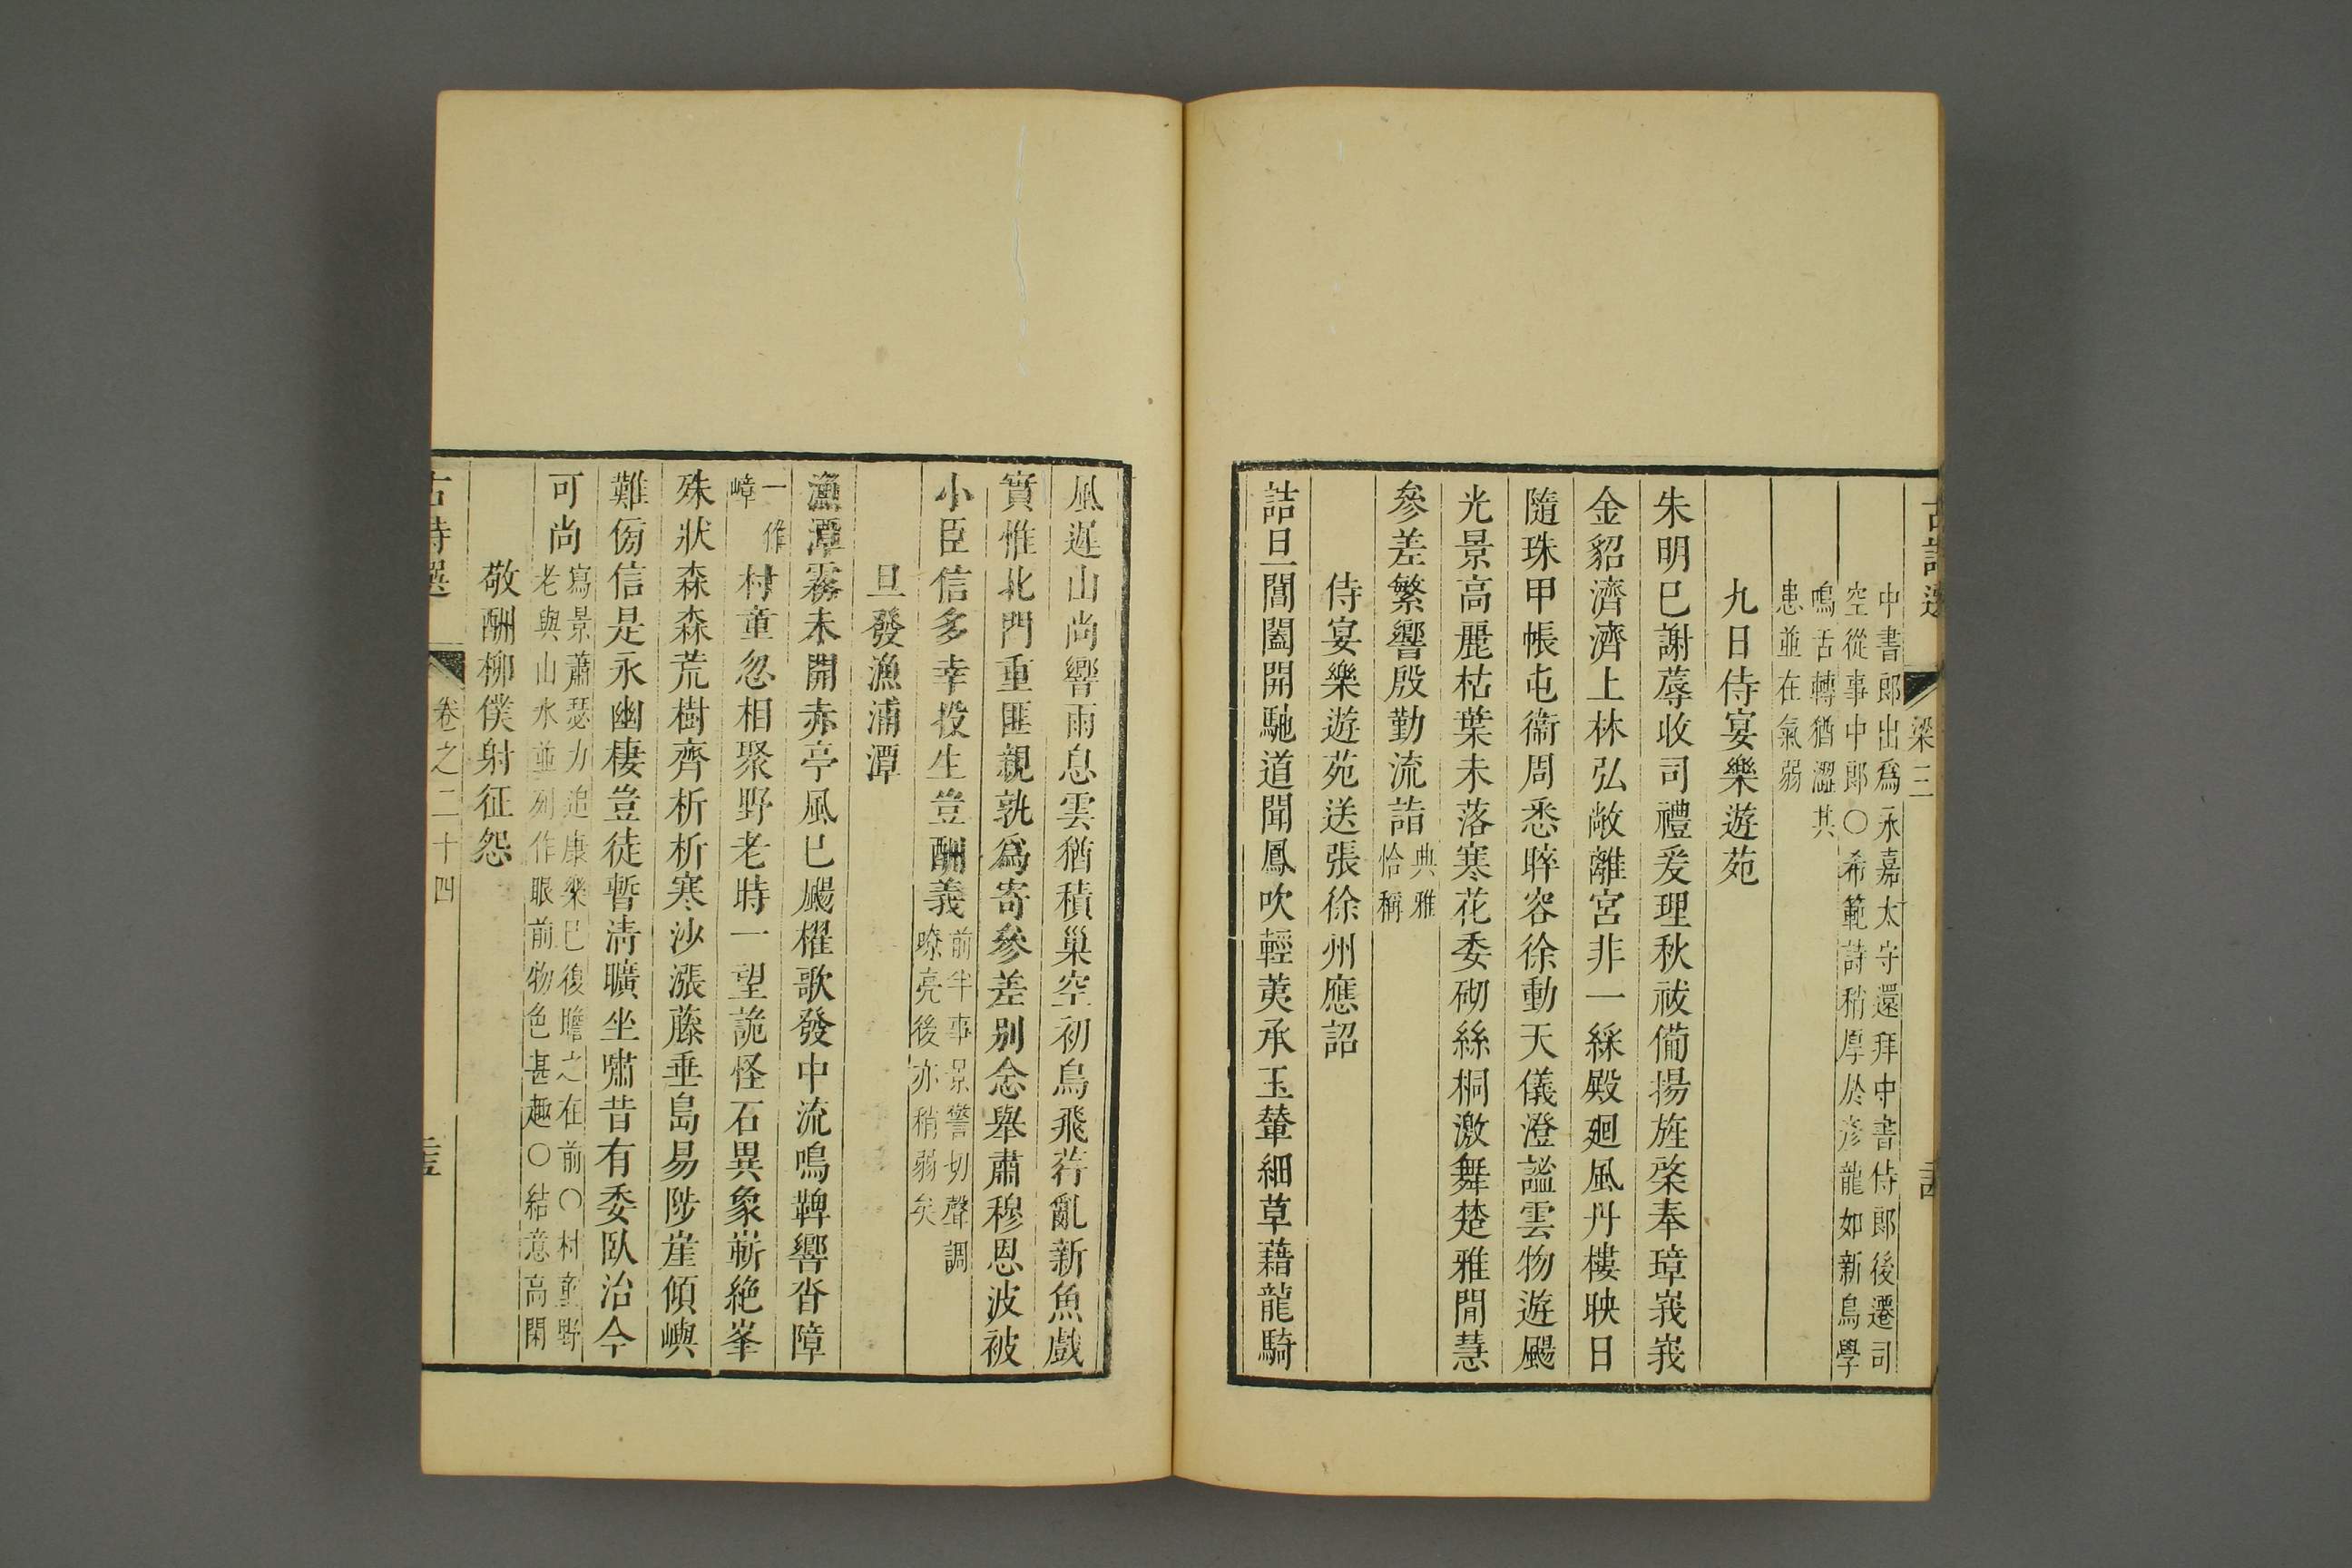 古詩選 梁三
中書郎出爲永嘉太守還拜中書侍郎後遷司
空從事中郎〇希範詩稍厚於彥龍如新鳥學
鳴舌轉猶澀其
患並在氣弱
九日侍宴樂遊苑
朱明已謝蓐收司禮爰理秋祓備揚旌棨奉璋峩峩
金貂濟濟上林弘敞離宮非一綵殿廻風丹樓映日
隨珠甲帳屯衞周悉睟容徐動天儀澄謐雲物遊颺
光景高麗枯葉未落寒花委砌絲桐激舞楚雅閒慧
參差繁響殷勤流詣
典雅
恰稱
侍宴樂遊苑送張徐州應詔
詰旦閶闔開馳道聞鳳吹輕荑承玉輦細草藉龍騎
風遲山尚響雨息雲猶積巢空初鳥飛荇亂新魚戲
實惟北門重匪親孰爲寄參差别念舉肅穆恩波被
小臣信多幸投生豈酬義
前半事景警切聲調
嘹亮後亦稍弱矣
旦發漁浦潭
漁潭霧未開赤亭風已颺櫂歌發中流鳴鞞響沓障
一作
嶂
村童忽相聚野老時一望詭怪石異象嶄絶峯
殊狀森森荒樹齊析析寒沙漲藤垂島易陟崖傾嶼
難傍信是永幽棲豈徒暫清曠坐嘯昔有委臥治今
可尚
寫景蕭瑟力追康樂已復瞻之在前〇村童野
老與山水並列作眼前物色甚趣〇結意高閑
敬酬柳僕射征怨
古詩選 卷之二十四